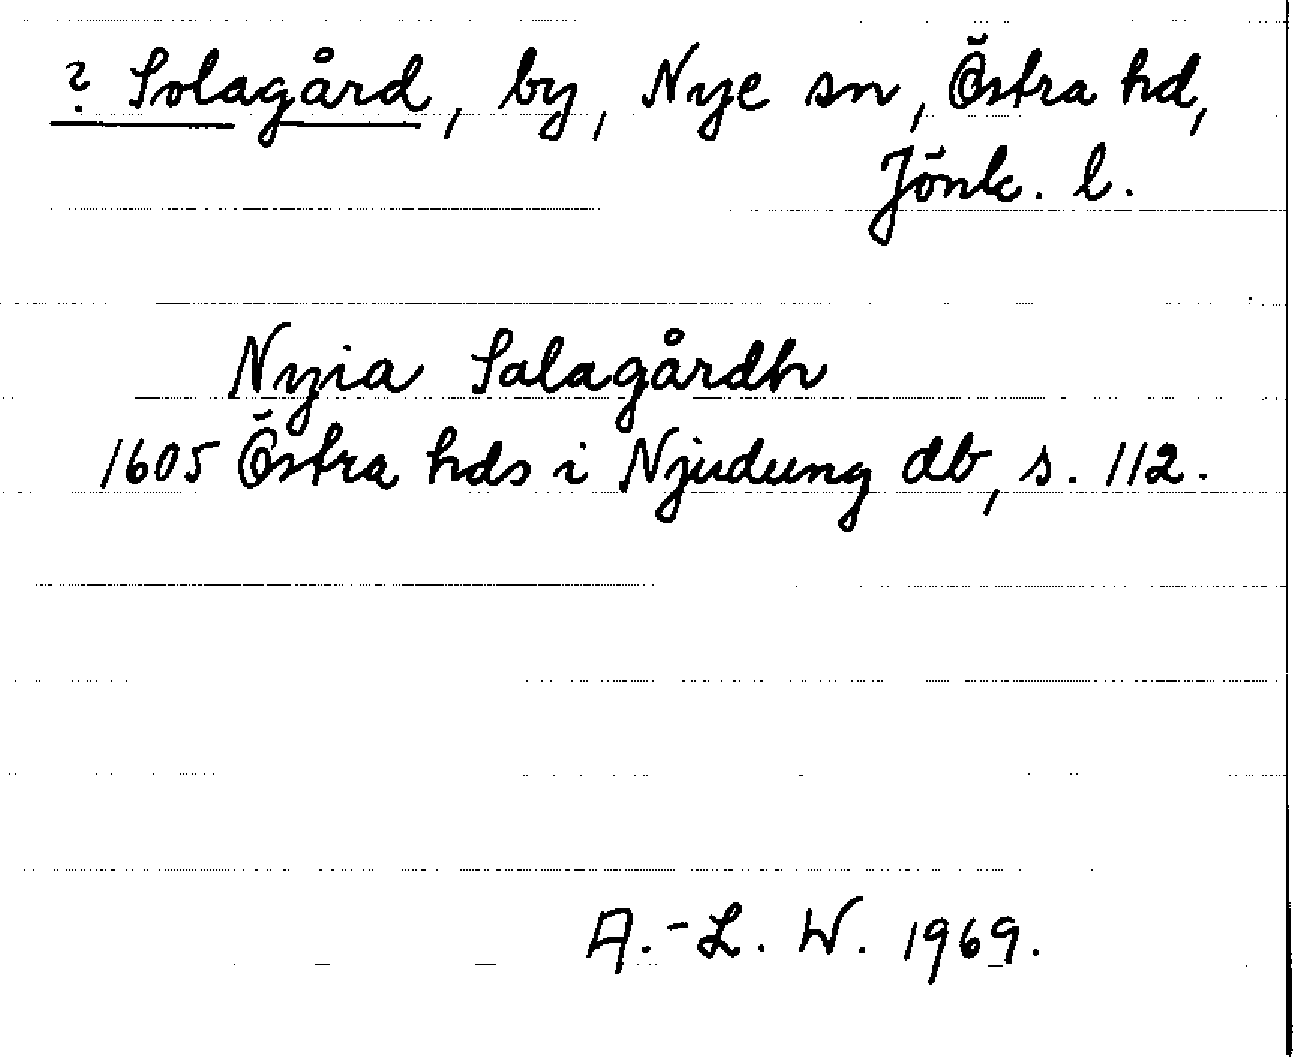 ? Solagård, by, Nye sn, Östra hd,
Jönk. l.
Nyia Salagårdh
1605 Östra hds i Njudung db, s. 112.
A.-L. W. 1969.